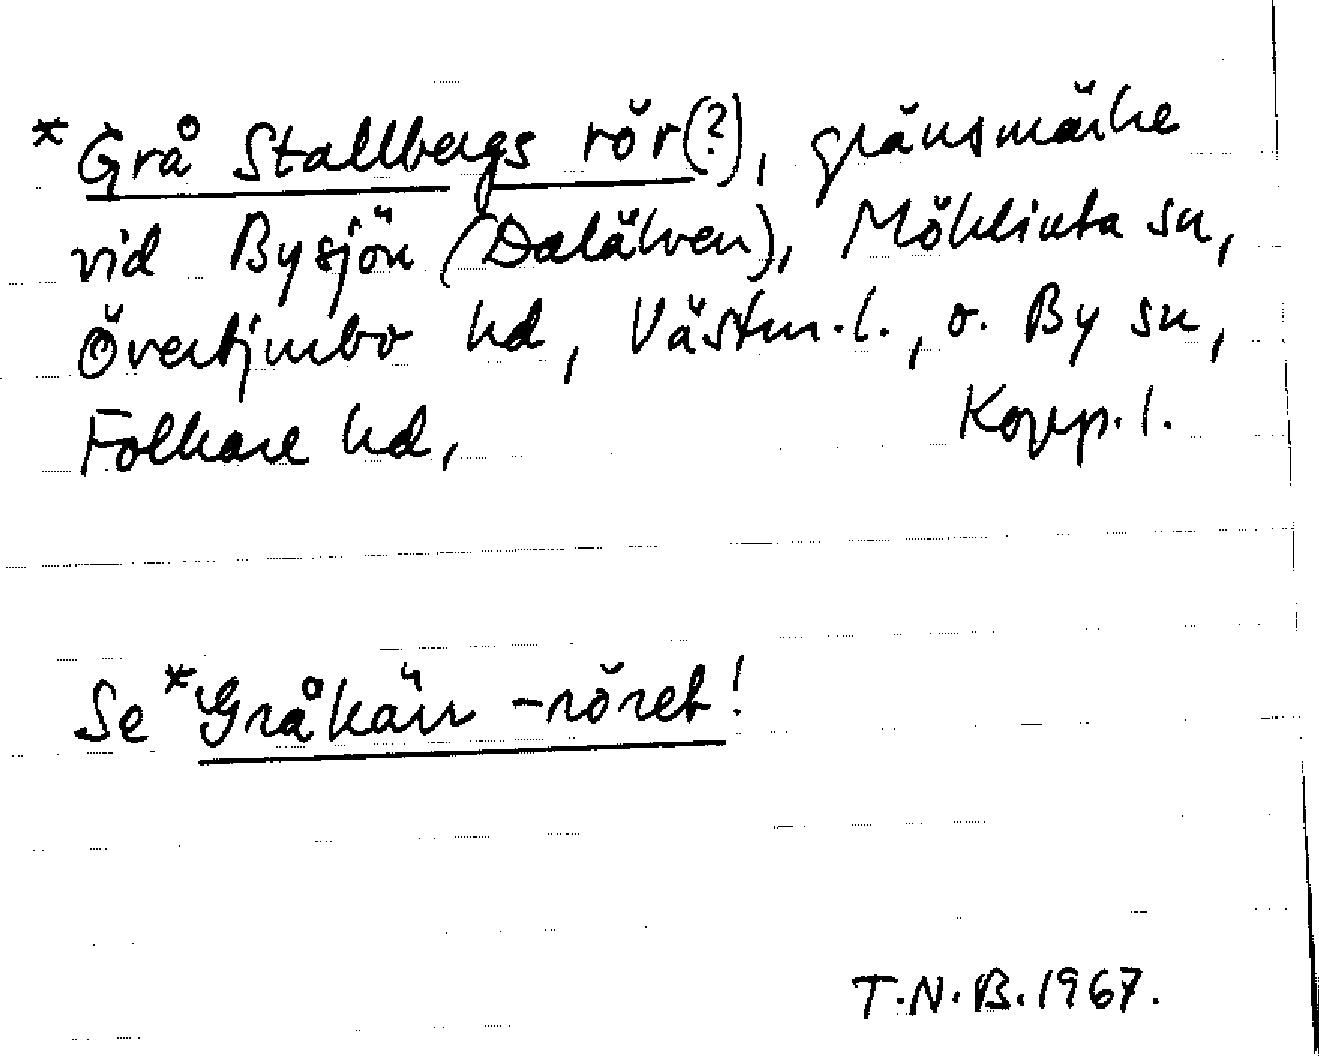 *Grå Stallbergs rör(?), gränsmärke
vid Bysjön (Dalälven), Möklinta sn,
Övertjurbo hd, Västm. l., o. By sn,
Folkare hd, Kopp. l.
Se *Gråkärr -röret!
T.N.B. 1967.